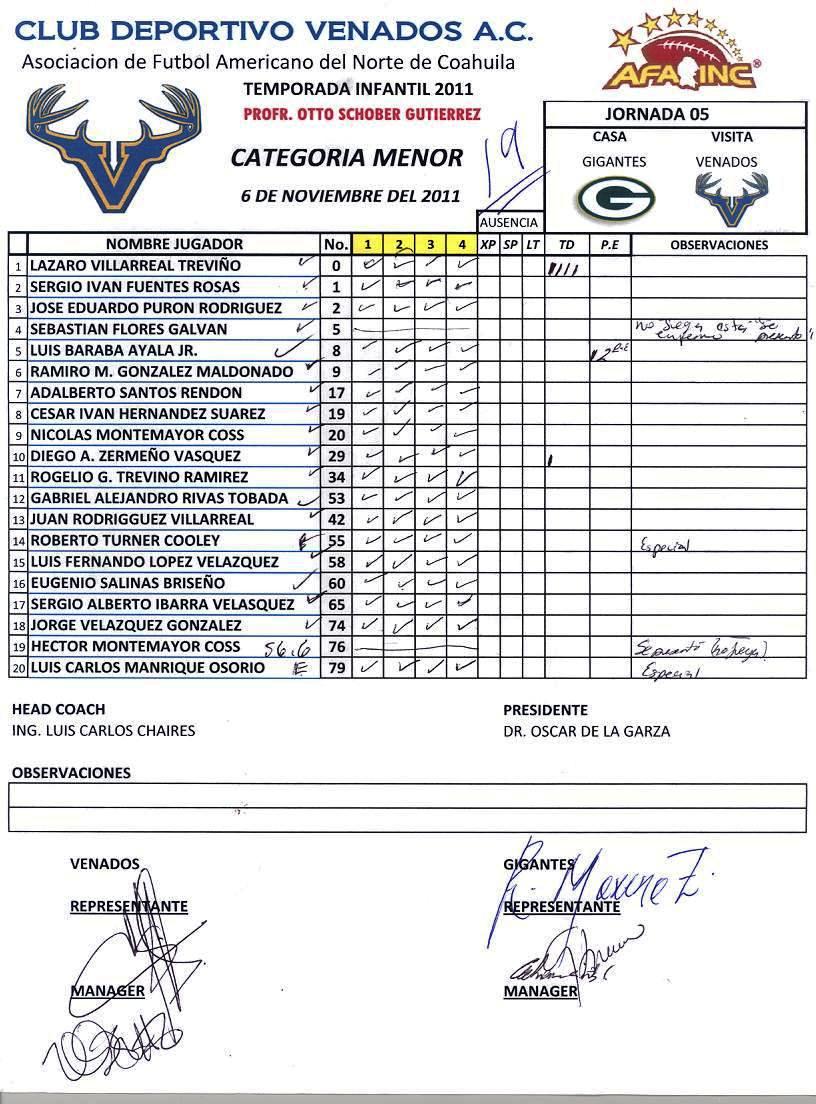 CLUB DEPORTIVO VENADOS A.C.
Asociacion de Futbol Americano del Norte de Coahuila
AFA INC®
TEMPORADA INFANTIL 2011
PROFR. OTTO SCHOBER GUTIERREZ
CATEGORIA MENOR
6 DE NOVIEMBRE DEL 2011
19
JORNADA 05
CASA VISITA
GIGANTES VENADOS
G
AUSENCIA
NOMBRE JUGADOR No. 1 2 3 4 XP SP LT TD P.E OBSERVACIONES
1 LAZARO VILLARREAL TREVIÑO 0
2 SERGIO IVAN FUENTES ROSAS 1
3 JOSE EDUARDO PURON RODRIGUEZ 2
4 SEBASTIAN FLORES GALVAN 5 no Juega esta enfermo "se presento"
5 LUIS BARABA AYALA JR. 8 2 P.E
6 RAMIRO M. GONZALEZ MALDONADO 9
7 ADALBERTO SANTOS RENDON 17
8 CESAR IVAN HERNANDEZ SUAREZ 19
9 NICOLAS MONTEMAYOR COSS 20
10 DIEGO A. ZERMEÑO VASQUEZ 29
11 ROGELIO G. TREVINO RAMIREZ 34
12 GABRIEL ALEJANDRO RIVAS TOBADA 53
13 JUAN RODRIGGUEZ VILLARREAL 42
14 ROBERTO TURNER COOLEY E 55 Especial
15 LUIS FERNANDO LOPEZ VELAZQUEZ 58
16 EUGENIO SALINAS BRISEÑO 60
17 SERGIO ALBERTO IBARRA VELASQUEZ 65
18 JORGE VELAZQUEZ GONZALEZ 74
19 HECTOR MONTEMAYOR COSS 56.6 76
20 LUIS CARLOS MANRIQUE OSORIO E 79 Especial
HEAD COACH PRESIDENTE
ING. LUIS CARLOS CHAIRES DR. OSCAR DE LA GARZA
OBSERVACIONES
VENADOS GIGANTES
REPRESENTANTE REPRESENTANTE
MANAGER MANAGER